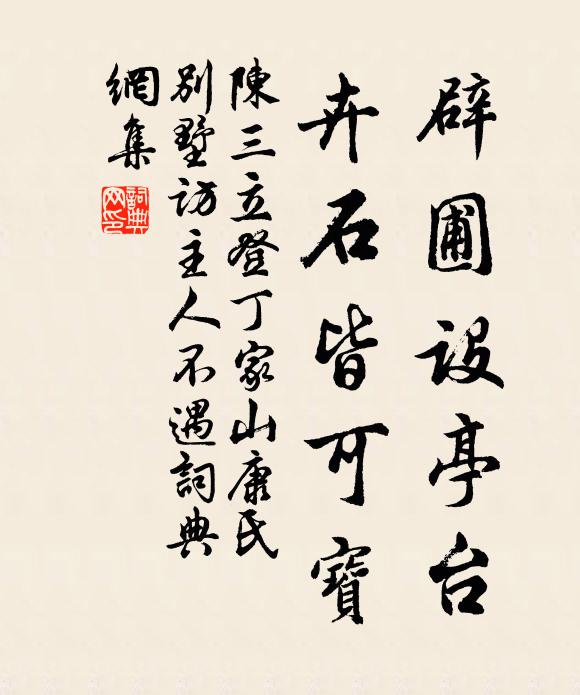 辟圃設亭台
卉石皆可寶
陳三立登丁家山康氏
別墅访主人不遇詞典
網集
詞典網印